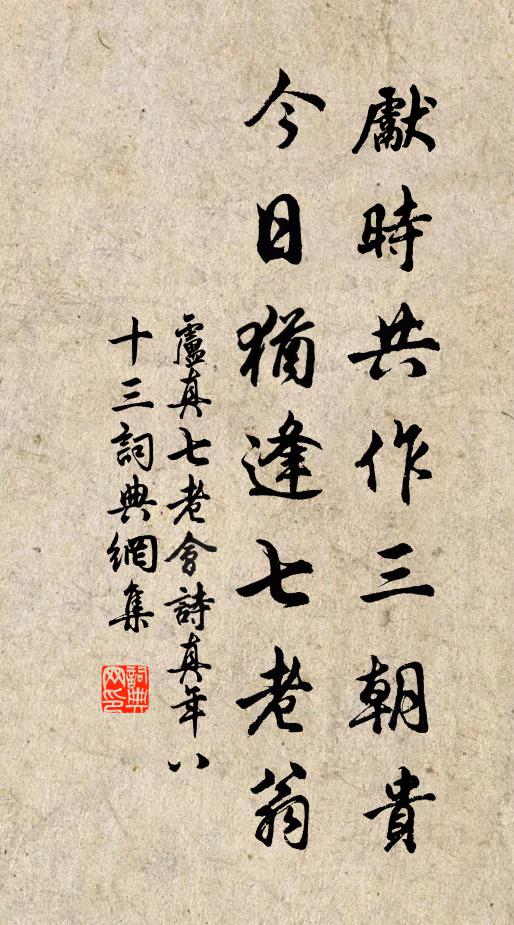 獻時共作三朝貴
今日猶逢七老翁
盧真七老會詩真年八
十三詞典網集
詞典
网印